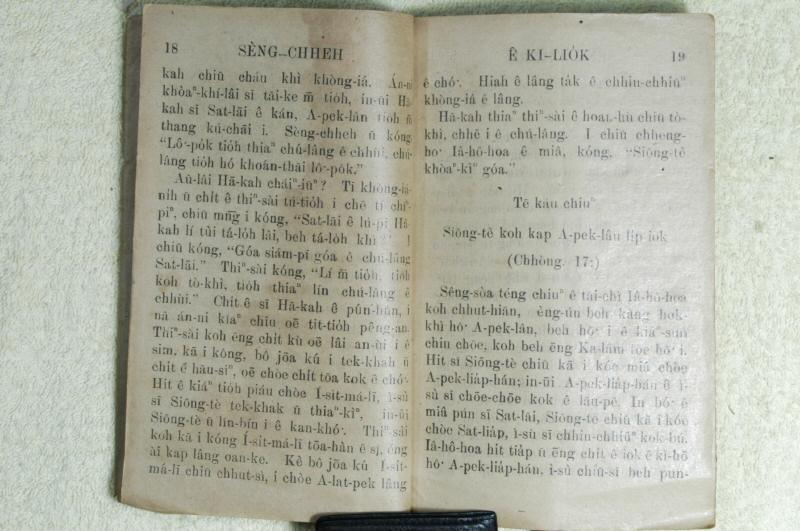 18 SÈNG-CHHEH
kah chiū cháu khì khòng-iá. Án-ni
khòaⁿ-khí-lâi sī tāi-ke m̄ tio̍h, in-ūi Hā-
kah sī Sat-lāi ê kán, A-pek-lân tio̍h m̄
thang kú-chāi i. Sèng-chheh ū kóng,
“Lô͘-po̍k tio̍h thiaⁿ chú-lâng ê chhùi, chú-
lâng tio̍h hó khoán-thāi lô͘-po̍k.”
Aū-lâi Hā-kah cháiⁿ-iūⁿ? Tī khòng-iá-
nih ū chi̍t ê thiⁿ-sài tú-tio̍h i chē tī chíⁿ-
piⁿ, chiū mn̄g i kóng, “Sat-lāi ê lú-pī Hā-
kah lí tùi tá-lo̍h lâi, beh tá-lo̍h khì?” I
chiū kóng, “Góa siám-pī góa ê chú-lâng
Sat-lāi.” Thiⁿ-sài kóng, “Lí m̄ tio̍h, tio̍h
koh tò-khì, tio̍h thiaⁿ lín chú-lâng ê
chhùi.” Chit ê sī Hā-kah ê pún-hūn, i
nā án-ni kiâⁿ chiū oē tit-tio̍h pêng-an.
Thiⁿ-sài koh ēng chi̍t kù oē lâi an-ùi i ê
sim, kā i kóng, bô jōa kú i tek-khak ū
chi̍t ê hāu-siⁿ, oē chòe chi̍t tōa kok ê chó͘.
Hit ê kiáⁿ tio̍h piáu chòe Í-si̍t-má-lī, ì-sù
sī Siōng-tè tek-khak ū thiaⁿ-kìⁿ, in-ūi
Siōng-tè ū lîn-bín i ê kan-khó͘. Thiⁿ-sài
koh kā i kóng Í-si̍t-má-lī tōa-hàn ê sî, ēng
ài kap lâng oan-ke. Kè bô jōa kú Í-si̍t-
má-lī chiū chhut-sì, i chòe A-lat-pek lâng
Ê KI-LIO̍K 19
ê chó͘. Hiah ê lâng ta̍k ê chhin-chhiūⁿ
khòng-iá ê lâng.
Hā-kah thiaⁿ thiⁿ-sài ê hoan-hù chiū tò-
khì, chhē i ê chú-lâng. I chiū chheng-
ho͘ Iâ-hô-hoa ê miâ, kóng, “Siōng-tè
khòaⁿ-kìⁿ góa.”
Tē káu chiuⁿ
Siōng-tè koh kap A-pek-lân li̍p iok
(Chhòng. 17:)
Sêng-sòa téng chiuⁿ ê tāi-chì Iâ-hô-hoa
koh chhut-hiān, èng-ún beh kàng hok-
khì hō͘ A-pek-lân, beh hō͘ i ê kiáⁿ-sun
chin chōe, koh beh ēng Ka-lâm tōe hō͘ i.
Hit sî Siōng-tè chiū kā i kóe miâ chòe
A-pek-lia̍p-hán; in-ūi A-pek-lia̍p-hán ê ì-
sù sī chōe-chōe kok ê lāu-pē. In bó͘ ê
miâ pún sī Sat-lāi, Siōng-tè chiū kā i kóe
chòe Sat-lia̍p, ì-sù sī chhin-chhiūⁿ kok-bú.
Iâ-hô-hoa hit tia̍p ū ēng chi̍t ê iok ê kì-hō
hō͘ A-pek-lia̍p-hán, ì-sù chiū-sī beh pun-